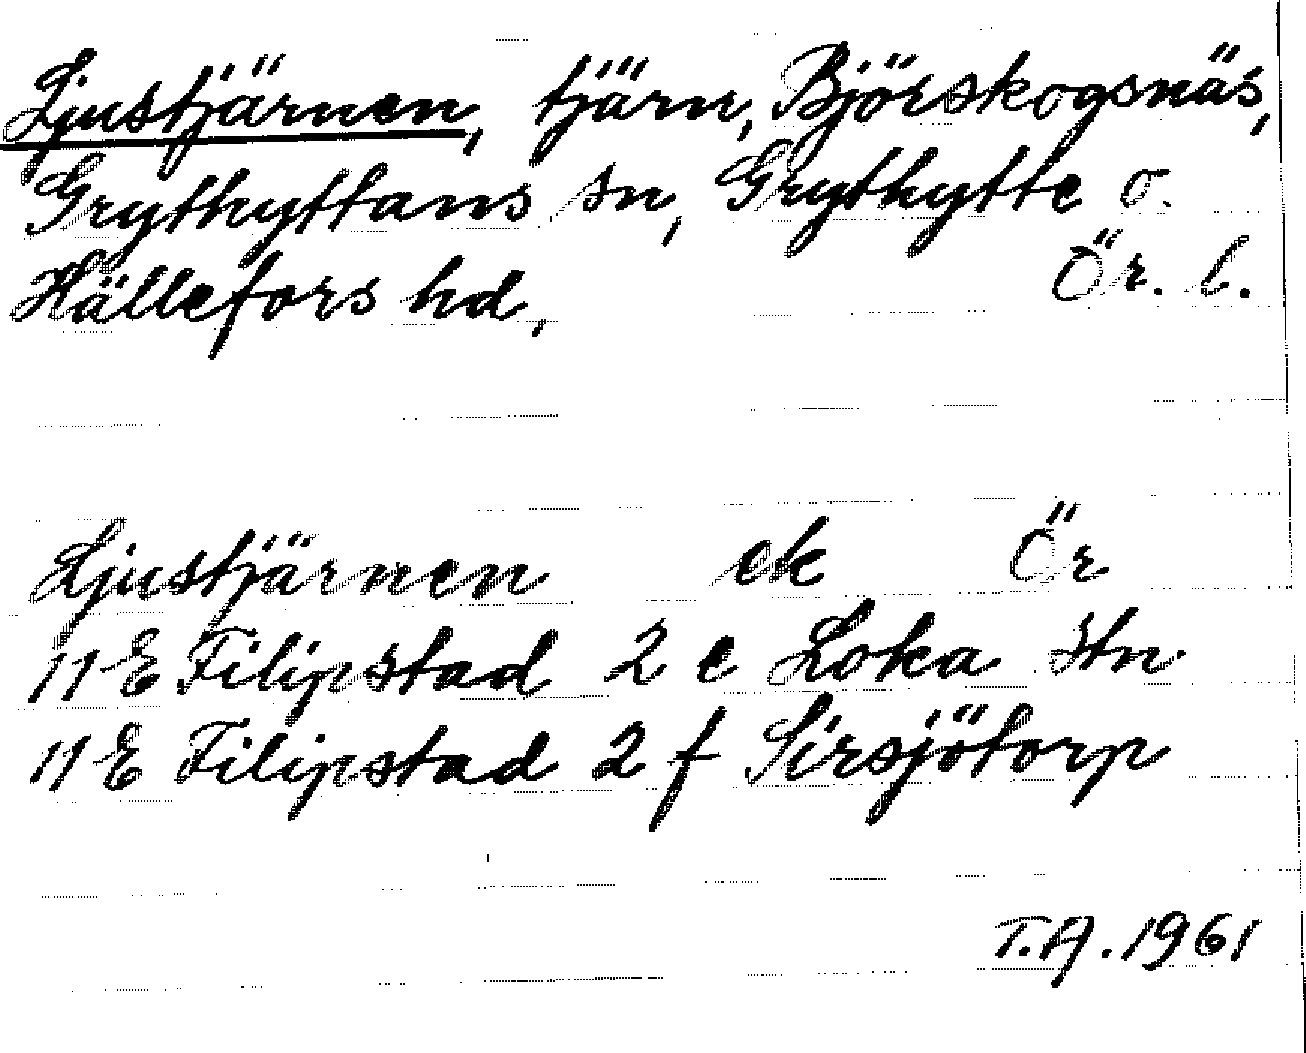 Ljustjärnen, tjärn, Björskogsnäs,
Grythyttans sn, Grythytte o.
Hällefors hd, Ör. l.
Ljustjärnen ek Ör
11 E Filipstad 2 e Loka stn
11 E Filipstad 2 f Sirsjötorp
T.A. 1961